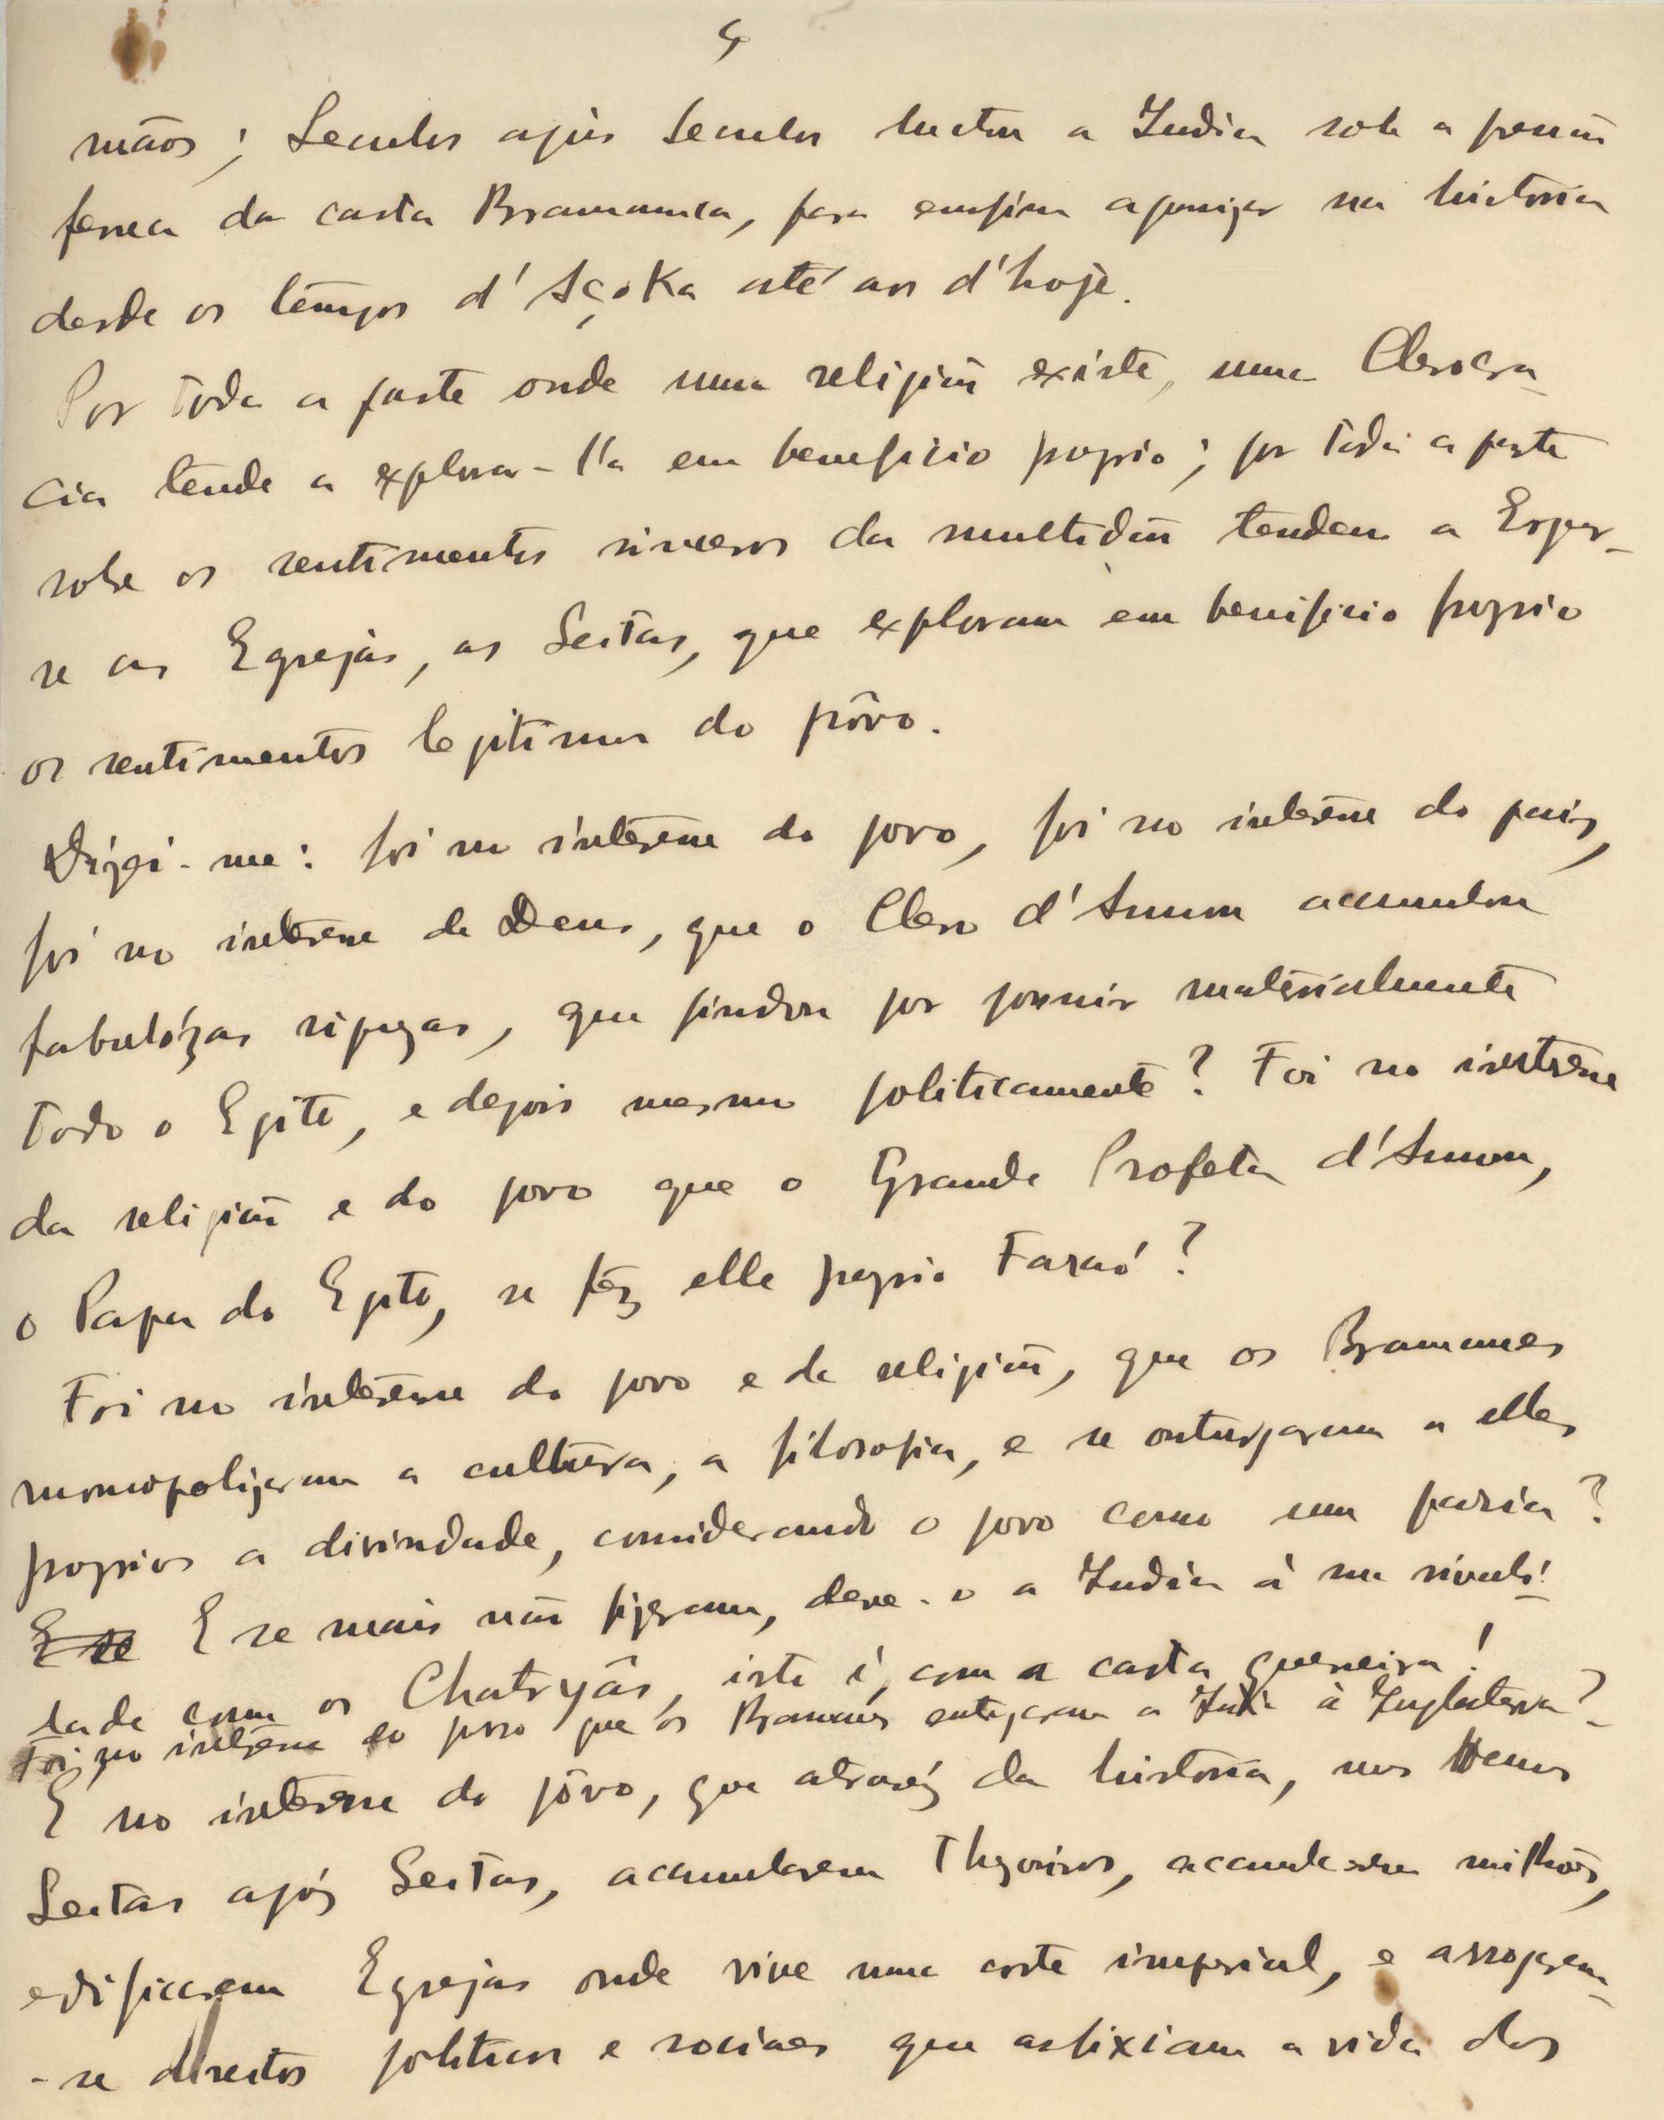 mãos; Seculos após Seculos luctou a India sob a pressão
ferrea da casta Bramanica, para emfim agonizar na historia
desde os tempos d'Açoka até aos d'hoje.
Por toda a parte onde uma religião existe, uma Clerocra-
cia tende a explorar-l'a em beneficio proprio; por toda a parte
sobre os sentimentos sinceros da multidão tendem a Erguer-
se as Egrejas, as Seitas, que exploram em beneficio proprio
os sentimentos legitimos do pôvo.
Dizei-me: foi no interesse do povo, foi no interesse do paiz,
foi no interesse de Deus, que o Clero d'Amon acumulou
fabulózas riquezas, que findou por possuir materialmente
todo o Egito, e depois mesmo politicamente? Foi no interesse
da religião e do povo que o Grande Profeta d'Amon,
o Papa do Egito, se fez elle proprio Faraó?
Foi no interesse do povo e da religião, que os Bramanes
monopolizaram a cultura, a filosofia, e se outorgaram a elles
proprios a divindade, considerando o povo como um paria?
E se E se mais não fizeram, deve-o a India á sua rivali-
dade com os Chatryâs, isto é, com a casta guerreira!
Foi no interesse do povo que os Bramanes entregaram a India à Inglaterra?
E no interesse do pôvo, que atravéz da historia, nos
Seitas apóz Seitas, acumularem Thezouros, accumularem milhões,
edificarem Egrejas onde vive uma corte imperial, e arrogarem-
-se direitos politicos e sociaes que asfixiam a vida dos